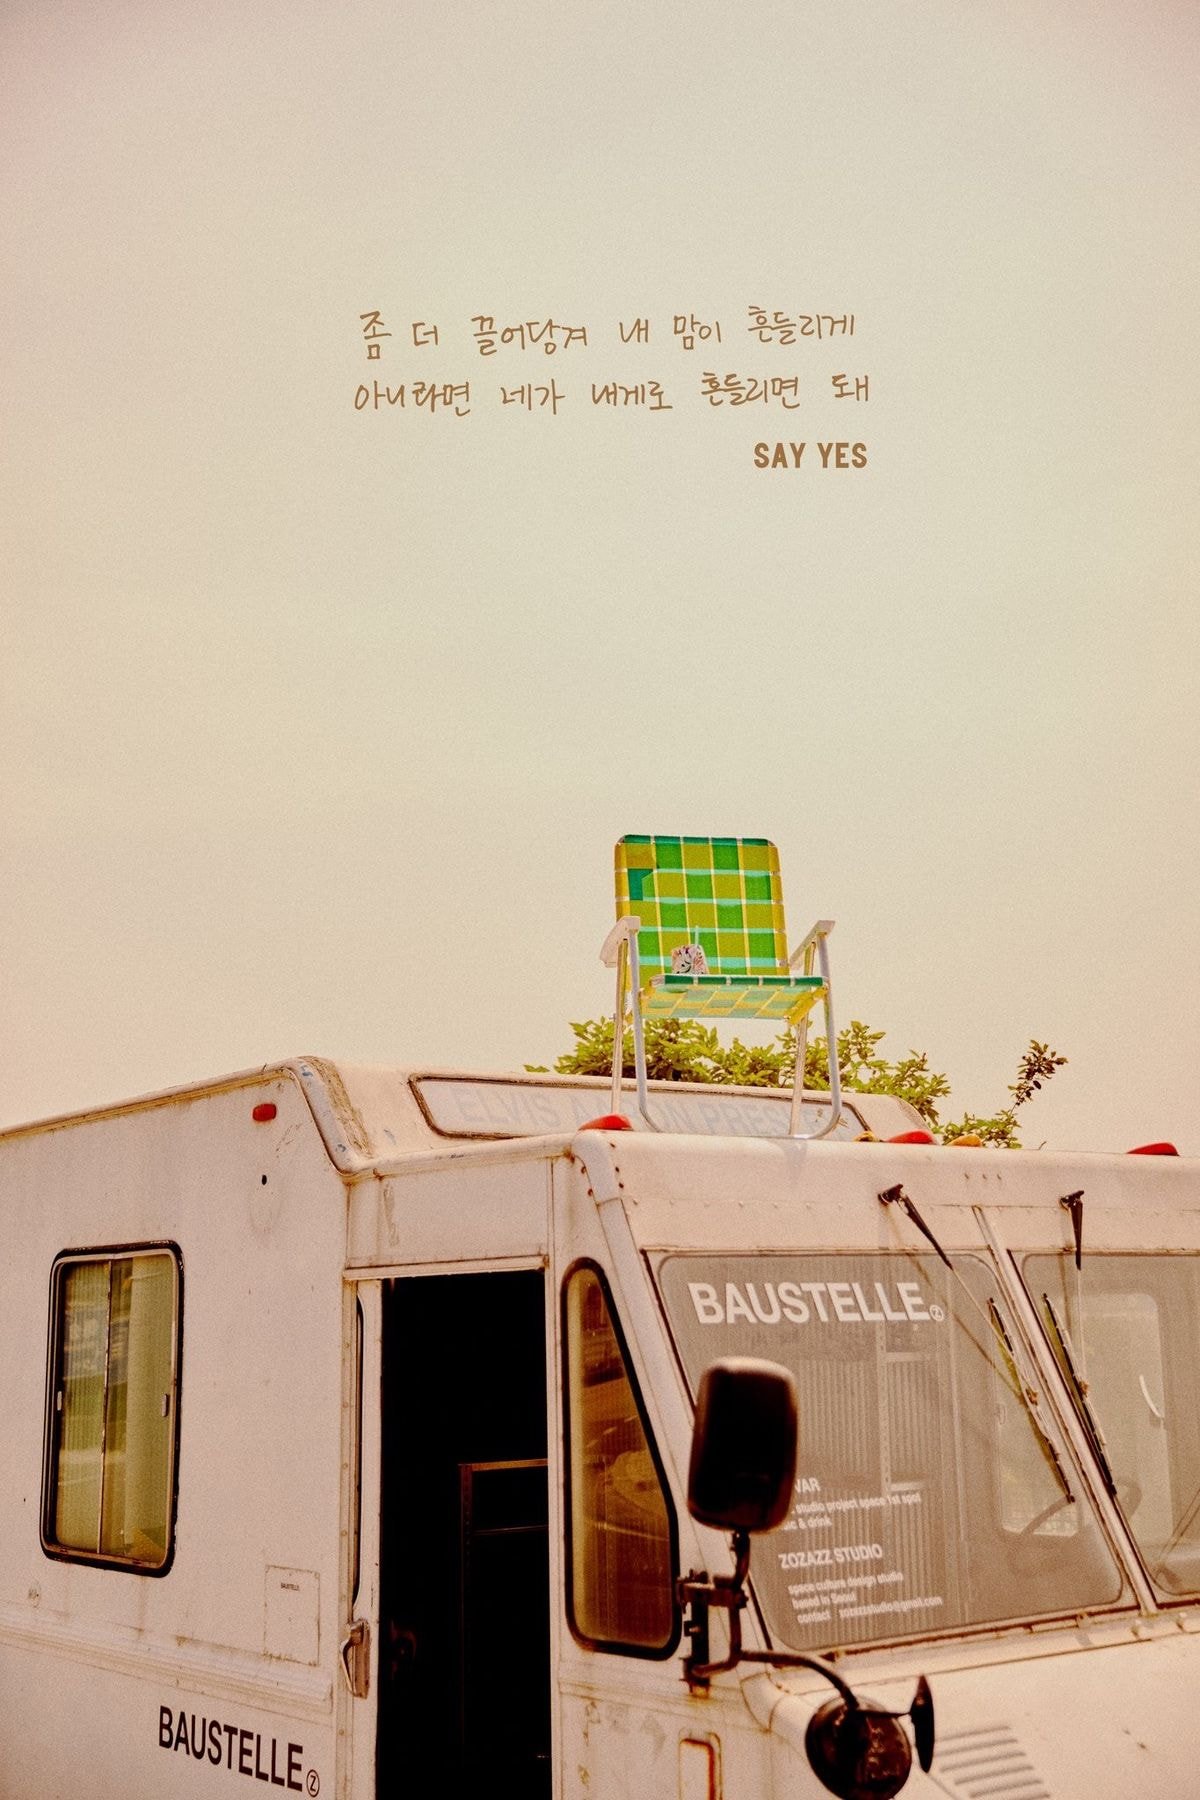 좀 더 끌어당겨 내 맘이 흔들리게
아니라면 네가 내게로 흔들리면 돼
SAY YES
ELVIS AARON PRESLEY
BAUSTELLE
VAR
studio project space 1st spot
& drink
ZOZAZZ STUDIO
space culture design studio
based in Seoul
contact zozazzstudio@gmail.com
BAUSTELLE
BAUSTELLE Z